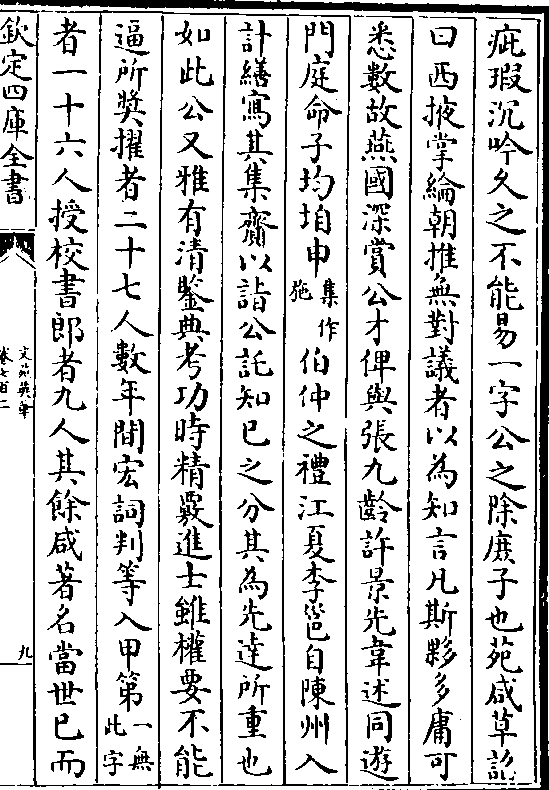 疵瑕沉吟久之不能易一字公之除庶子也苑咸草詔
曰西掖掌綸朝推無對議者以為知言凡斯夥多庸可
悉數故燕國深賞公才俾與張九齡許景先韋述同遊
門庭命子均垍申集作施伯仲之禮江夏李邕自陳州入
計繕寫其集齎以詣公託知已之分其為先達所重也
如此公又雅有清鑒典考功時精覈進士雖權要不能
逼所奬擢者二十七人數年間宏詞判等入甲第一無此字
者一十六人授校書郎者九人其餘咸著名當世已而
欽定四庫全書
文苑英華
卷七百二
九